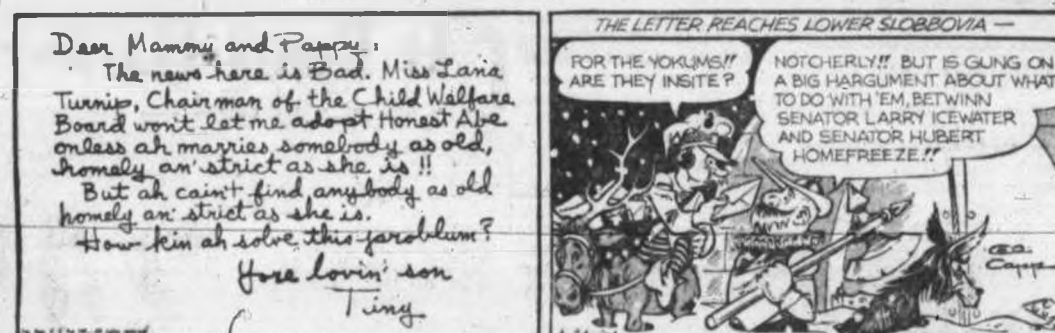 Dear Mammy and Pappy:
The news here is Bad. Miss Lana
Turnip, Chairman of the Child Welfare
Board won't let me adopt Honest Abe
onless ah marries somebody as old,
homely an' strict as she is!!
But ah cain't find anybody as old
homely an' strict as she is.
How kin ah solve this problum?
Yore lovin' son
Tiny
THE LETTER REACHES LOWER SLOBBOVIA —
FOR THE YOKUMS!!
ARE THEY INSITE?
NOTCHERLY!! BUT IS GUNG ON
A BIG HARGUMENT ABOUT WHAT
TO DO WITH 'EM, BETWINN
SENATOR LARRY ICEWATER
AND SENATOR HUBERT
HOMEFREEZE!!
Capp